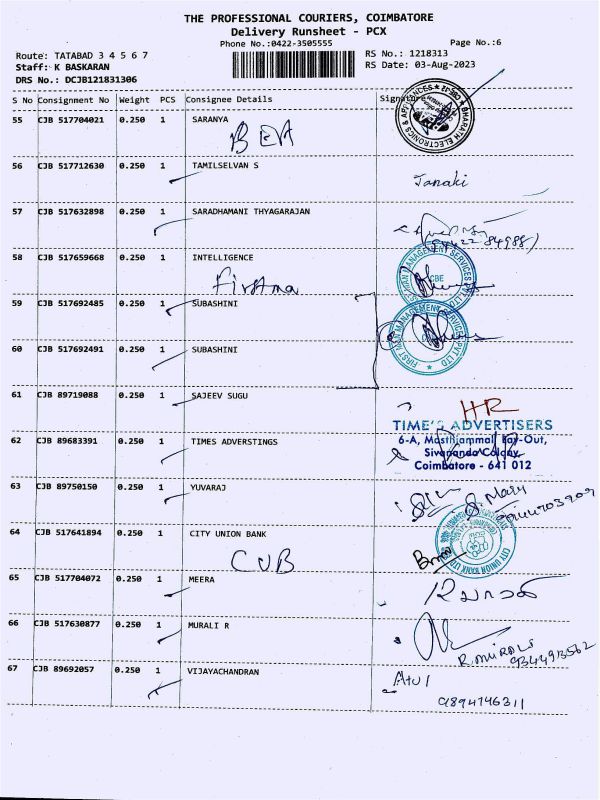 THE PROFESSIONAL COURIERS, COIMBATORE
Delivery Runsheet - PCX
Phone No.:0422-3505555
Page No.:6
Route: TATABAD 3 4 5 6 7
RS No.: 1218313
Staff: K BASKARAN
RS Date: 03-Aug-2023
DRS No.: DCJB121831306
S No Consignment No Weight PCS Consignee Details Signature
55 CJB 517704021 0.250 1 SARANYA
BEA
BHARATH ELECTRONICS & APPLIANCES CBE-12
56 CJB 517712630 0.250 1 TAMILSELVAN S
Janaki
57 CJB 517632898 0.250 1 SARADHAMANI THYAGARAJAN
58 CJB 517659668 0.250 1 INTELLIGENCE
Firstma
FIRST MAN MANAGEMENT SERVICES PVT LTD
CBE
59 CJB 517692485 0.250 1 SUBASHINI
FIRST MAN MANAGEMENT SERVICES PVT LTD
60 CJB 517692491 0.250 1 SUBASHINI
61 CJB 89719088 0.250 1 SAJEEV SUGU
HR
TIME'S ADVERTISERS
6-A, Masthiammal Lay-Out,
Sivananda Colony,
Coimbatore - 641 012
62 CJB 89683391 0.250 1 TIMES ADVERSTINGS
63 CJB 89750150 0.250 1 YUVARAJ
Mary
64 CJB 517641894 0.250 1 CITY UNION BANK
CUB
CITY UNION BANK LTD
65 CJB 517704072 0.250 1 MEERA
66 CJB 517630877 0.250 1 MURALI R
67 CJB 89692057 0.250 1 VIJAYACHANDRAN
Atul
9894746311